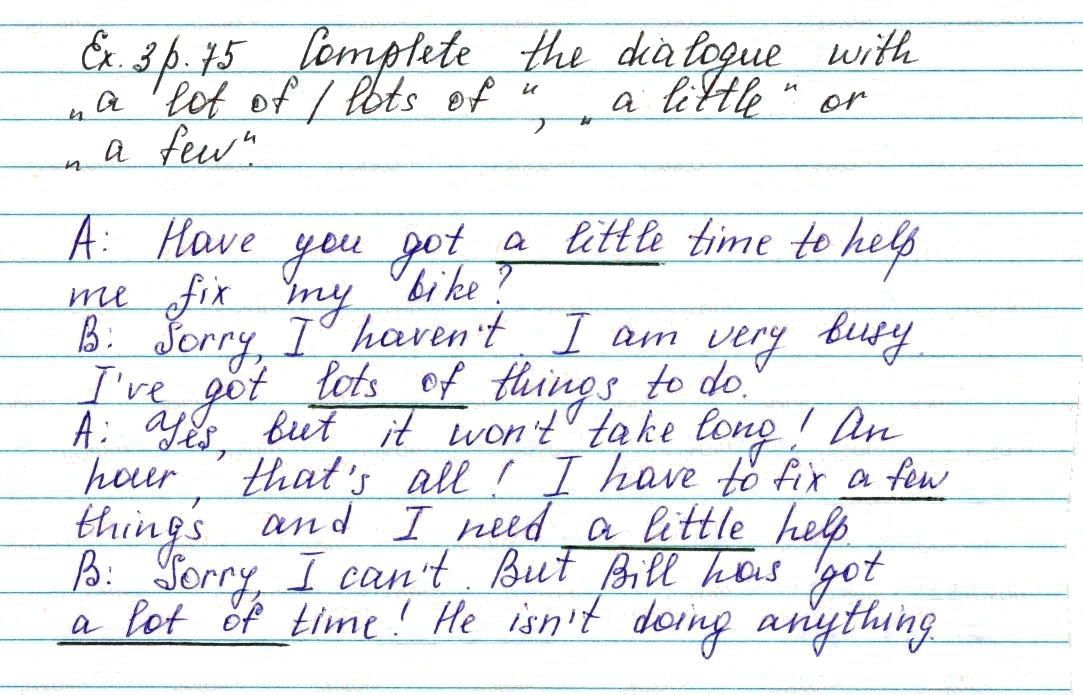 Ex. 3 p. 75 Complete the dialogue with
„a lot of / lots of “, „a little“ or
„a few“.
A: Have you got a little time to help
me fix my bike?
B: Sorry, I haven't. I am very busy.
I've got lots of things to do.
A: Yes, but it won't take long! An
hour, that's all! I have to fix a few
things and I need a little help.
B: Sorry, I can't. But Bill has got
a lot of time! He isn't doing anything.